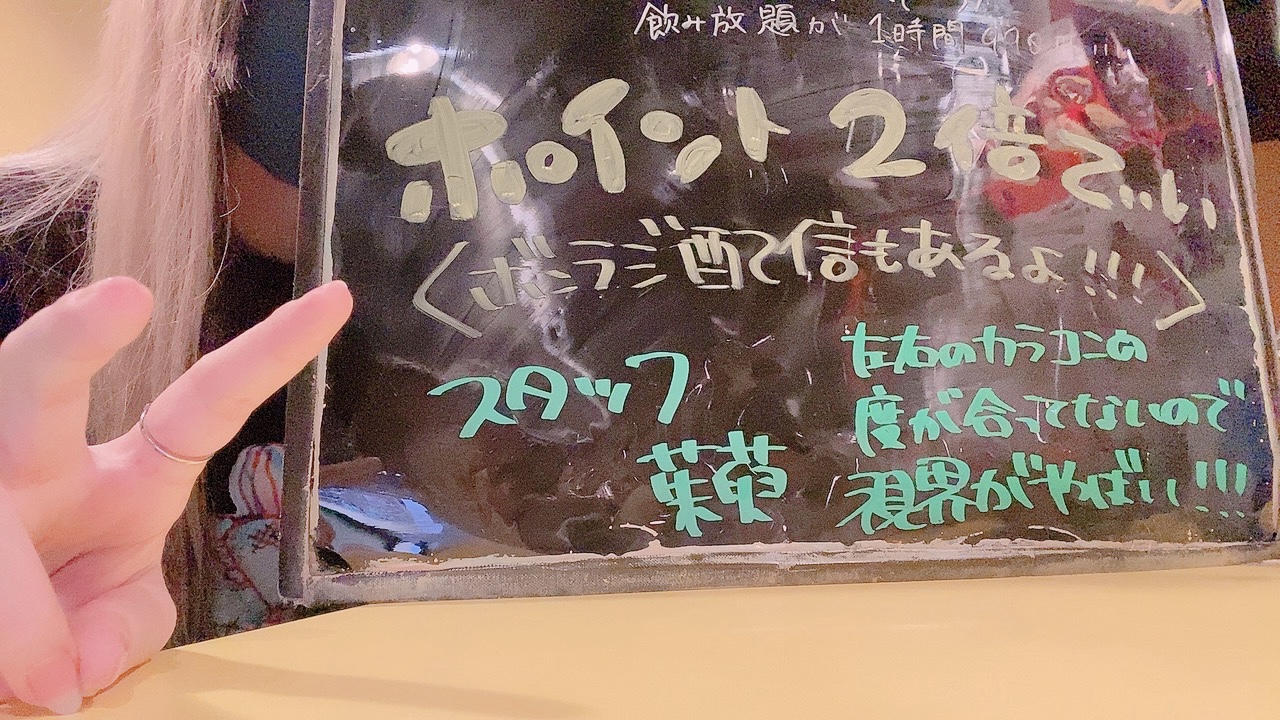 飲み放題が1時間
ポイント2倍でい
〈ボミラジ酒て信もあるよ!!!〉
スタッフ
茱萸
左右のカラコンの
度が合ってないので
視界がやばい!!!